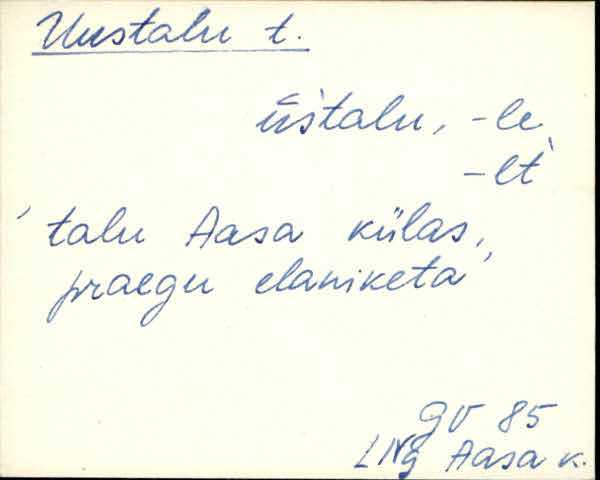 Uustalu t.
ùstalu, -le,
-lt
'talu Aasa külas,
praegu elaniketa'
GV 85
LNg Aasa k.